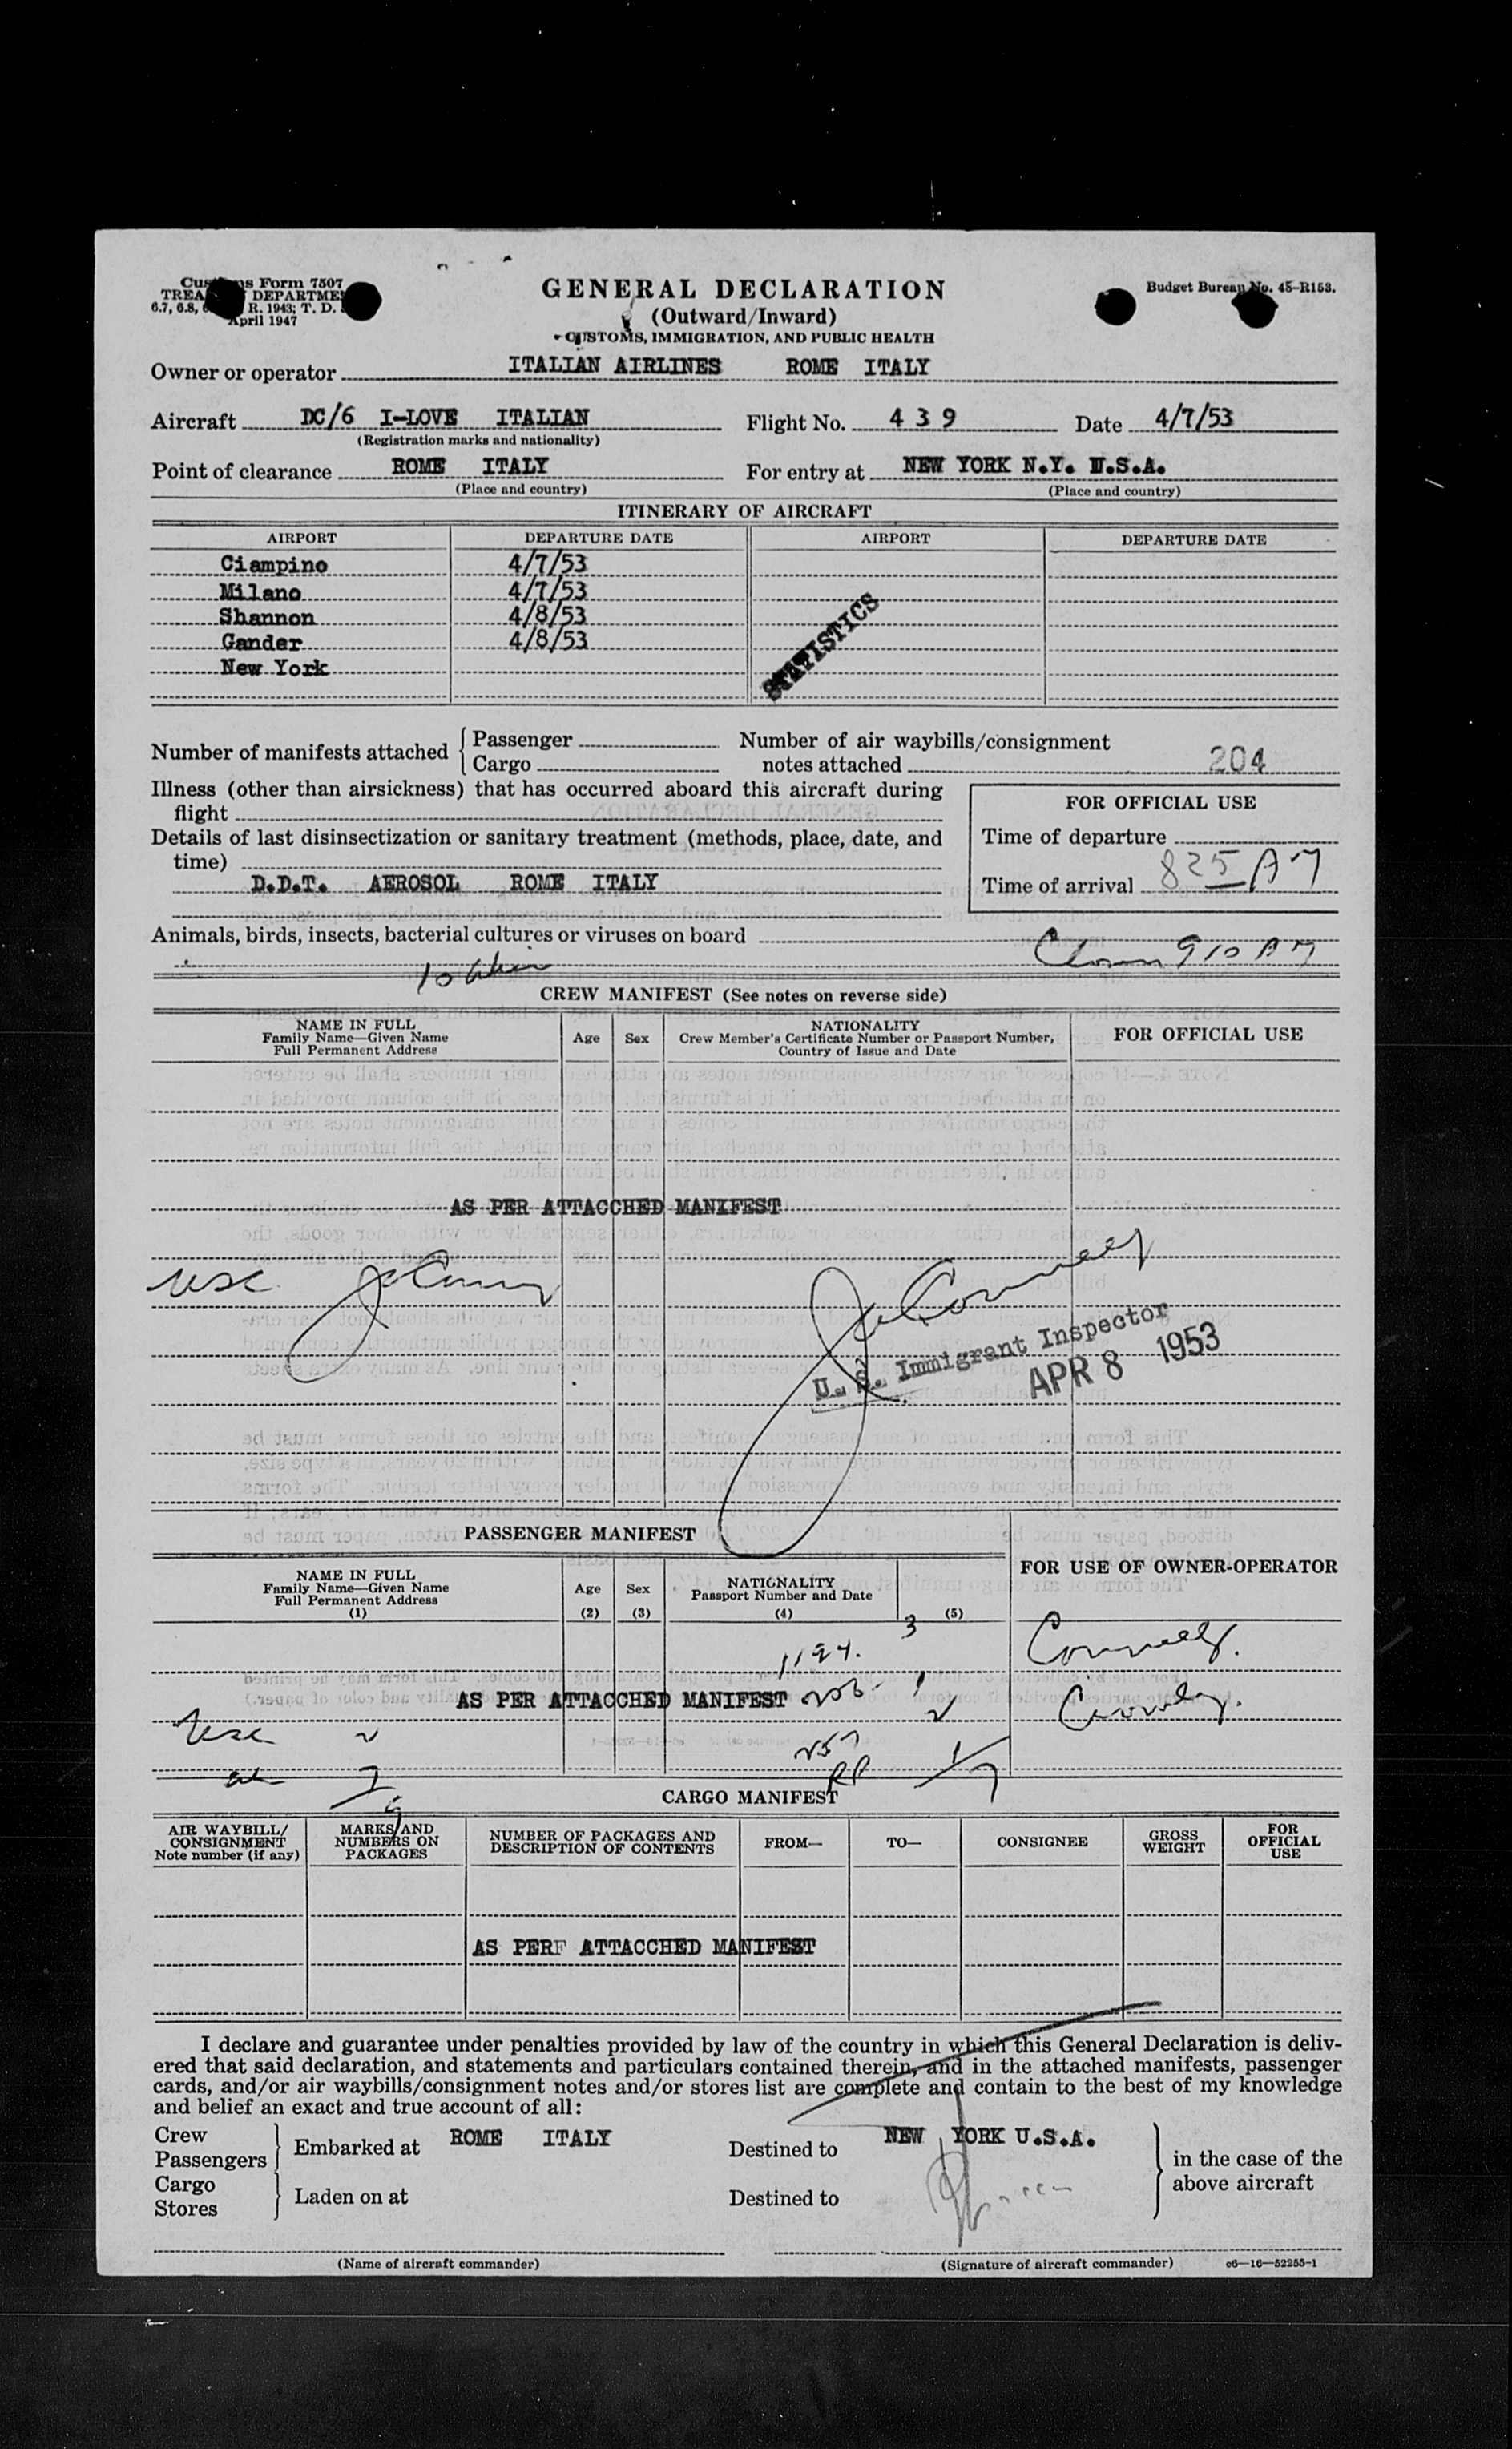 Customs Form 7507
TREASURY DEPARTMENT
6.7, 6.8, R. 1943; T. D.
April 1947
GENERAL DECLARATION
(Outward/Inward)
CUSTOMS, IMMIGRATION, AND PUBLIC HEALTH
Budget Bureau No. 45-R153.
Owner or operator ITALIAN AIRLINES ROME ITALY
Aircraft DC/6 I-LOVE ITALIAN Flight No. 4 3 9 Date 4/7/53
(Registration marks and nationality)
Point of clearance ROME ITALY For entry at NEW YORK N.Y. U.S.A.
(Place and country) (Place and country)
ITINERARY OF AIRCRAFT
AIRPORT DEPARTURE DATE AIRPORT DEPARTURE DATE
Ciampino 4/7/53
Milano 4/7/53
Shannon 4/8/53
Gander 4/8/53
New York
STATISTICS
Number of manifests attached { Passenger Number of air waybills/consignment
Cargo notes attached 204
Illness (other than airsickness) that has occurred aboard this aircraft during
flight
FOR OFFICIAL USE
Details of last disinsectization or sanitary treatment (methods, place, date, and
time)
Time of departure
D.D.T. AEROSOL ROME ITALY
Time of arrival 825 AM
Animals, birds, insects, bacterial cultures or viruses on board
910 AM
10
CREW MANIFEST (See notes on reverse side)
NAME IN FULL
Family Name—Given Name
Full Permanent Address
Age
Sex
NATIONALITY
Crew Member's Certificate Number or Passport Number,
Country of Issue and Date
FOR OFFICIAL USE
AS PER ATTACCHED MANIFEST
usc
U. S. Immigrant Inspector
APR 8 1953
PASSENGER MANIFEST
FOR USE OF OWNER-OPERATOR
NAME IN FULL
Family Name—Given Name
Full Permanent Address
(1)
Age
(2)
Sex
(3)
NATIONALITY
Passport Number and Date
(4)
(5)
3
Connelly.
AS PER ATTACCHED MANIFEST
usc 2
RP
CARGO MANIFEST
AIR WAYBILL/
CONSIGNMENT
Note number (if any)
MARKS AND
NUMBERS ON
PACKAGES
NUMBER OF PACKAGES AND
DESCRIPTION OF CONTENTS
FROM—
TO—
CONSIGNEE
GROSS
WEIGHT
FOR
OFFICIAL
USE
AS PERF ATTACCHED MANIFEST
I declare and guarantee under penalties provided by law of the country in which this General Declaration is deliv-
ered that said declaration, and statements and particulars contained therein, and in the attached manifests, passenger
cards, and/or air waybills/consignment notes and/or stores list are complete and contain to the best of my knowledge
and belief an exact and true account of all:
Crew
Passengers } Embarked at ROME ITALY Destined to NEW YORK U.S.A.
Cargo
Stores } Laden on at Destined to
in the case of the
above aircraft
(Name of aircraft commander) (Signature of aircraft commander) c6—16—52255-1